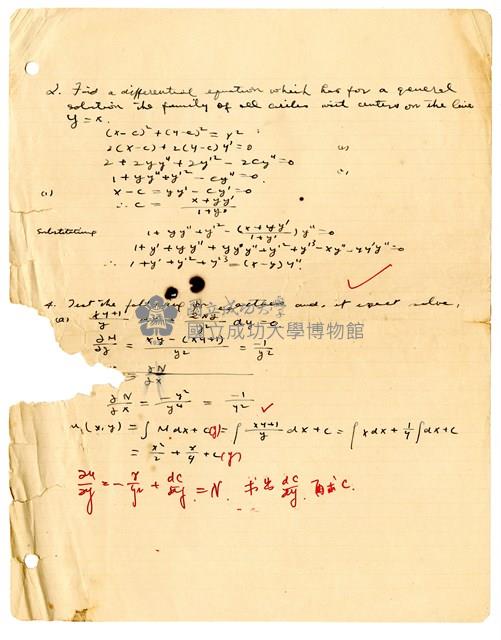 2. Find a differential equation which has for a general
solution the family of all circles with centers on the line
y = x.
(x-c)² + (y-c)² = r²
2(x-c) + 2(y-c)y' = 0
2 + 2yy'' + 2y'² - 2cy'' = 0
1 + yy'' + y'² - cy'' = 0
(1) x - c = yy' - cy' = 0
∴ c = (x + yy')/(1 + y')
Substituting 1 + yy'' + y'² - ((x + yy')/(1 + y')) y'' = 0
1 + y' + yy'' + yy'y'' + y'² + y'³ - xy'' - yy'y'' = 0
∴ 1 + y' + y'² + y'³ = (x-y)y''
4. Test the following for exactness and, if exact, solve,
(a) (xy+1)/y dy = 0
國立成功大學
國立成功大學博物館
∂M/∂y = (xy - (xy+1))/y² = -1/y²
∂N/∂x
∂N/∂x = -y²/y⁴ = -1/y²
u(x,y) = ∫Mdx + c(y) = ∫(xy+1)/y dx + c = ∫xdx + 1/y∫dx + c
= x²/2 + x/y + c(y)
∂u/∂y = -x/y² + dc/dy = N. 求出 dc/dy 再求 C.